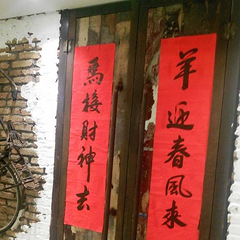 羊迎春風來
馬接財神去